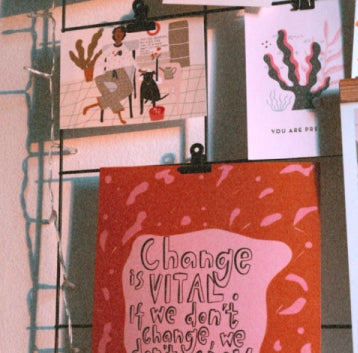 YOU ARE PRE
Change
is VITAL.
If we don't
change, we
don't